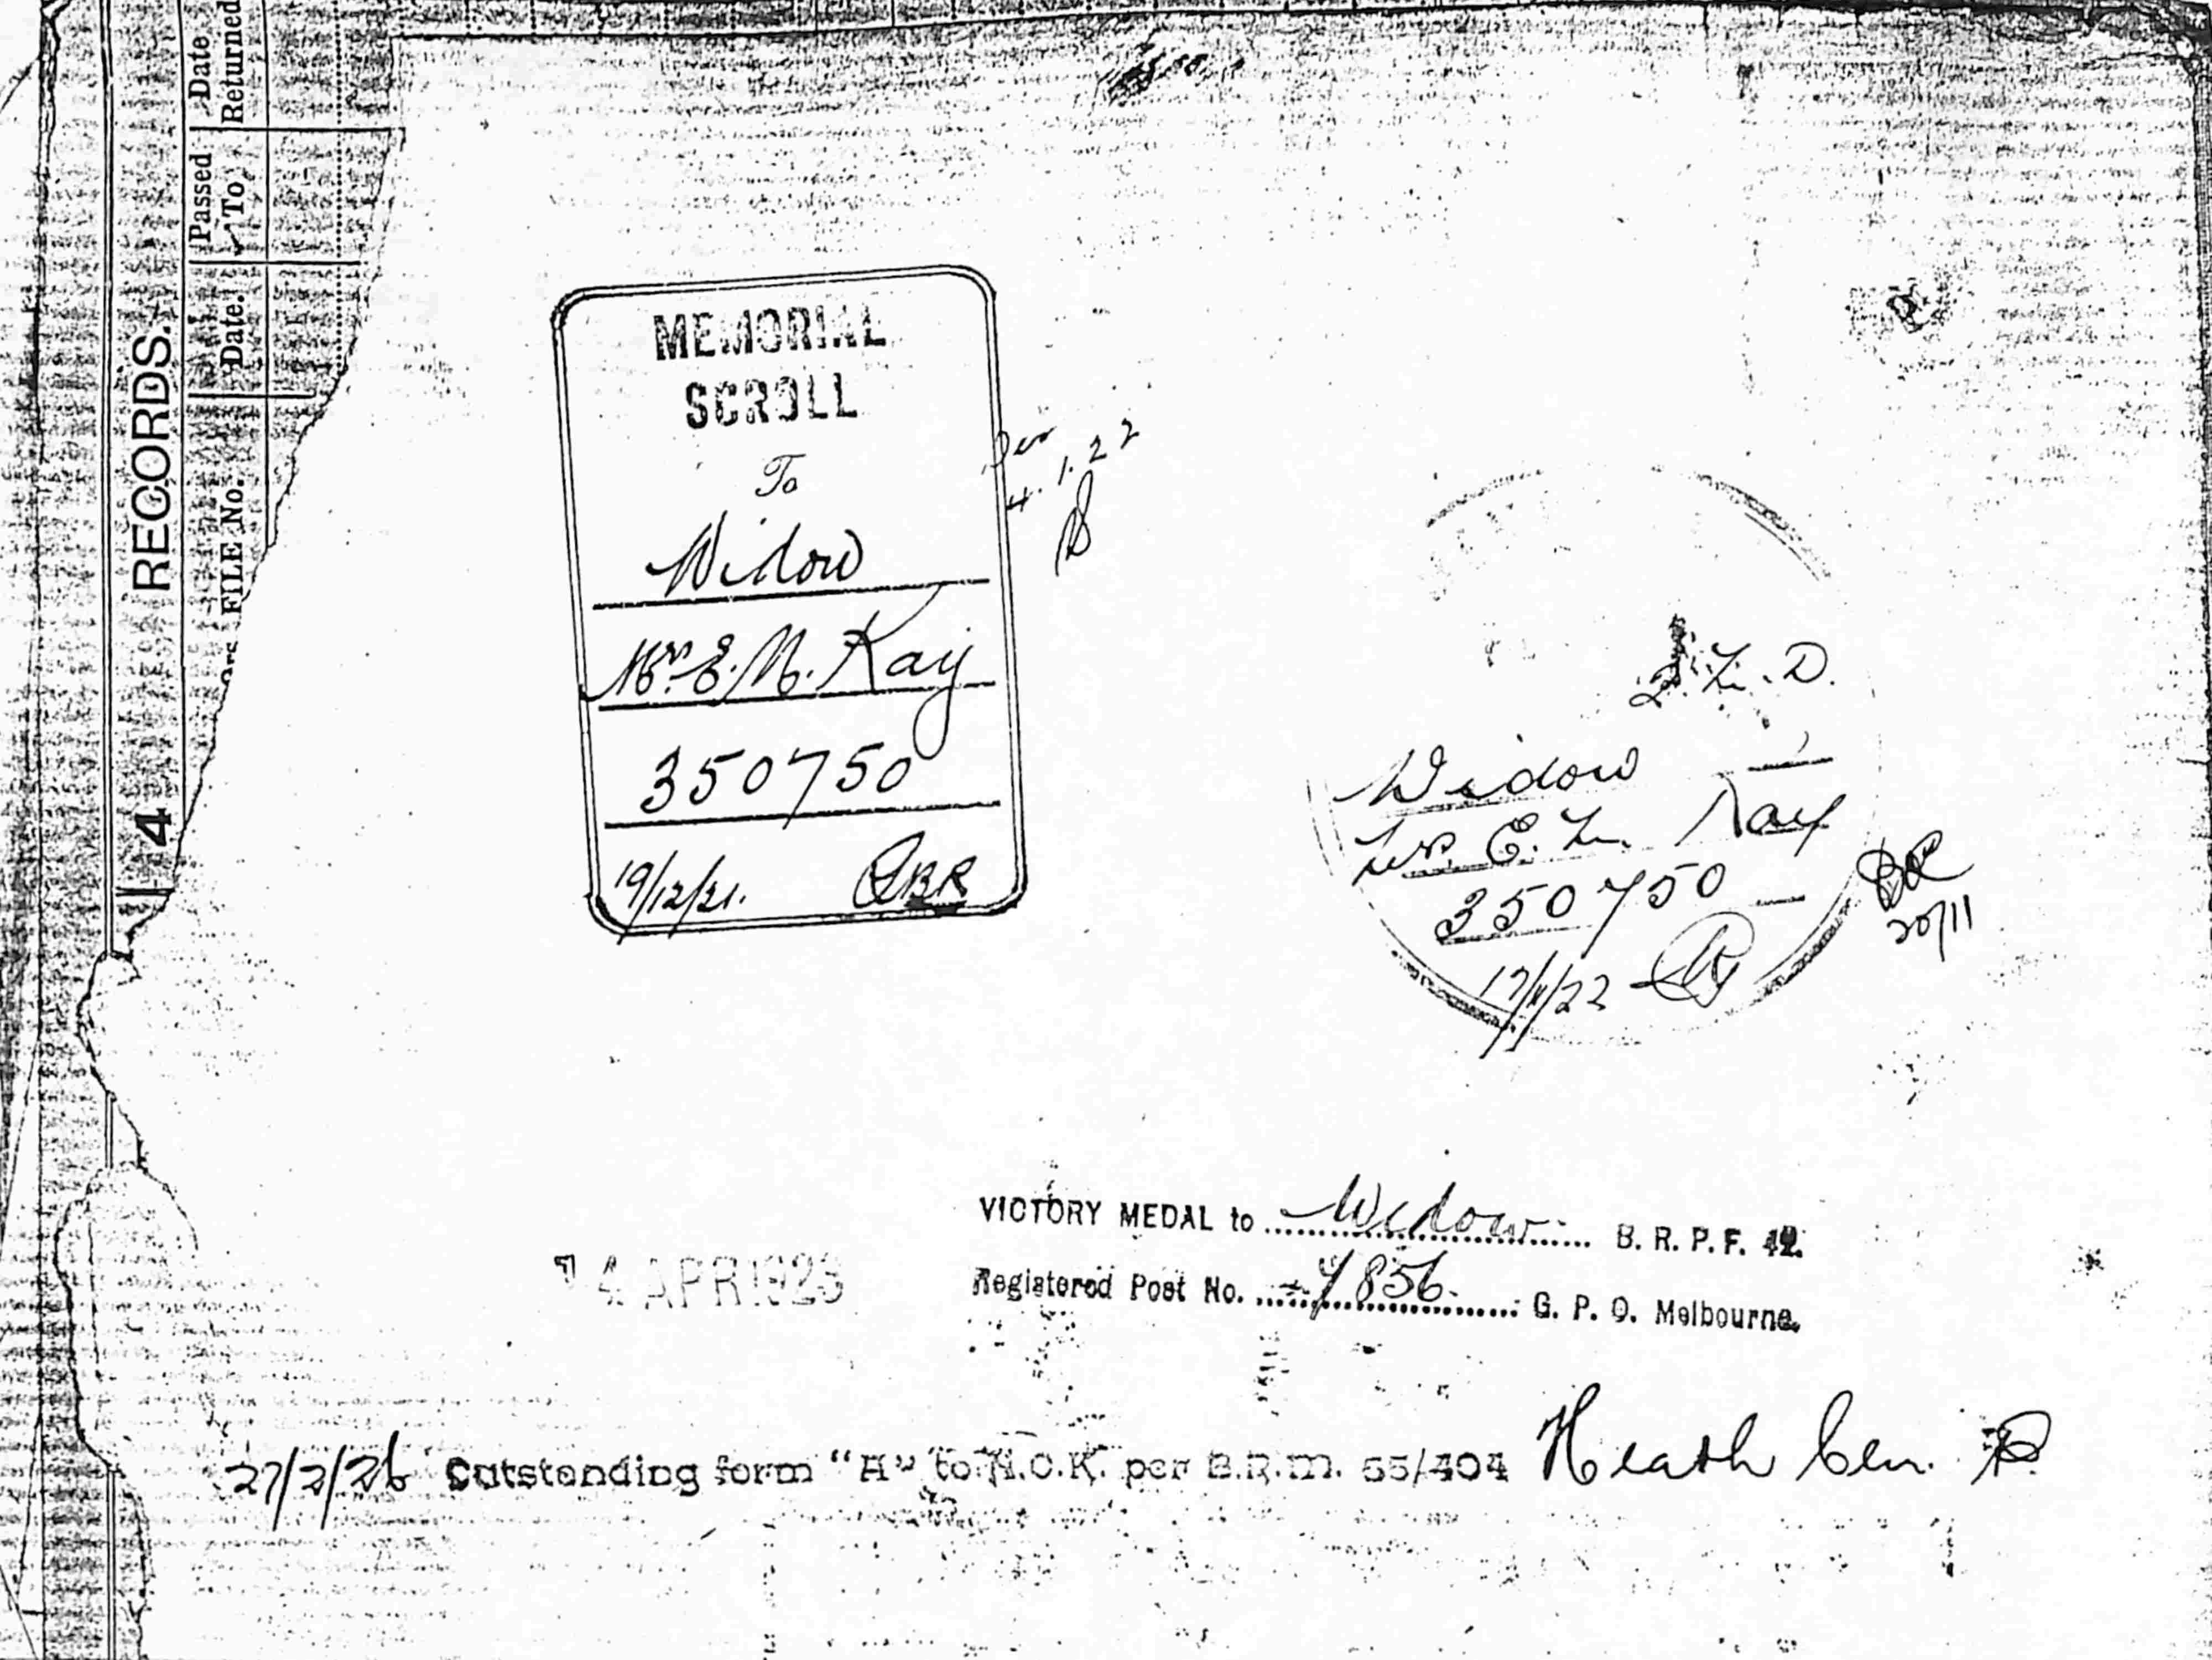 4 RECORDS.
FILE No. Date. Passed To Date Returned
MEMORIAL
SCROLL
To
Widow
Mrs E. M. Kay
350750
19/12/21.
4.1.22
Widow
Mrs. E. M. Kay
350750
17/11/22
20/11
VICTORY MEDAL to Widow B. R. P. F. 42.
Registered Post No. 4856. G. P. O. Melbourne.
APR 1923
27/2/26 Outstanding form "A" to N.O.K. per B.R.M. 55/404 Heath Cem.